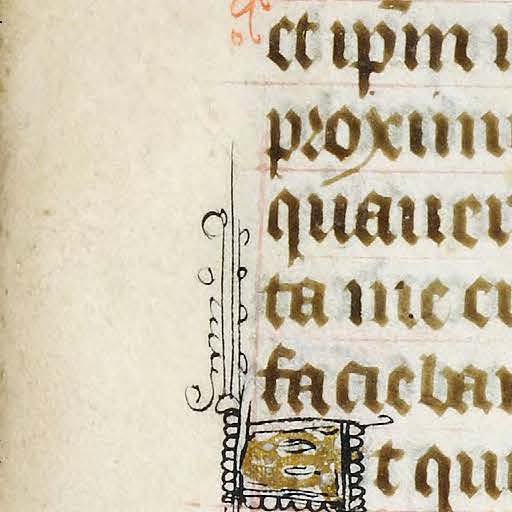 et ipm
proximu
quauer
ta me cu
faciebar
Et qui